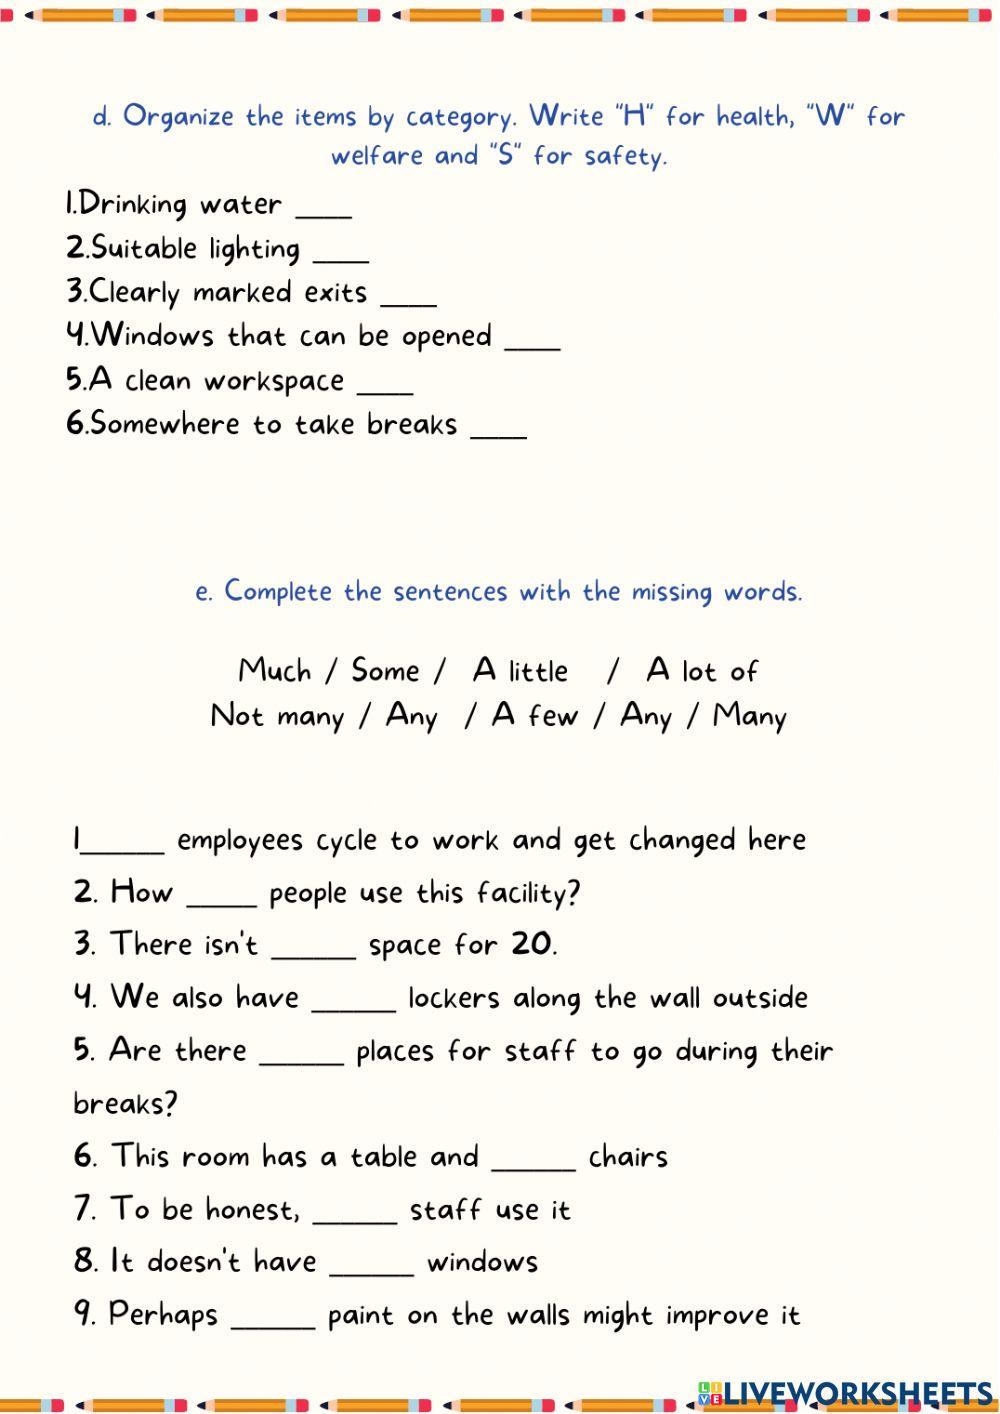 d. Organize the items by category. Write "H" for health, "W" for
welfare and "S" for safety.
1.Drinking water ____
2.Suitable lighting ____
3.Clearly marked exits ____
4.Windows that can be opened ____
5.A clean workspace ____
6.Somewhere to take breaks ____
e. Complete the sentences with the missing words.
Much / Some / A little / A lot of
Not many / Any / A few / Any / Many
1______ employees cycle to work and get changed here
2. How _____ people use this facility?
3. There isn't ______ space for 20.
4. We also have ______ lockers along the wall outside
5. Are there ______ places for staff to go during their
breaks?
6. This room has a table and ______ chairs
7. To be honest, ______ staff use it
8. It doesn't have ______ windows
9. Perhaps ______ paint on the walls might improve it
LIVE LIVEWORKSHEETS